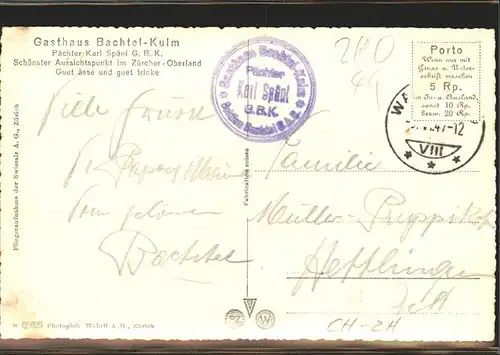 Gasthaus Bachtel-Kulm
Pächter Karl Späni G. B. K.
Schönster Aussichtspunkt im Zürcher-Oberland
Guet ässe und guet trinke
Gasthaus Bachtel-Kulm
Pächter
Karl Späni
G.B.K.
Porto
Wenn nur mit
Gruss u. Unter-
schrift versehen
5 Rp.
im In- u. Ausland,
sonst 10 Rp.
bezw. 20 Rp.
47-12
VIII
Viele Grüsse
Vom schönen
Bachtel
Familie
Müller-
Hettlingen
CH-ZH
Fliegeraufnahme der Swissair A. G., Zürich
Fabrication suisse
W 09829 Photoglob Wehrli A. G., Zürich
PZ
W